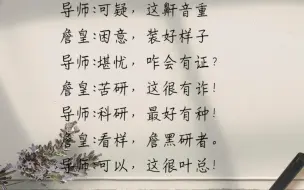 导师:可疑，这鼾音重
詹皇:困意，装好样子
导师:堪忧，咋会有证?
詹皇:苦研，这很有诈!
导师:科研，最好有种!
詹皇:看样，詹黑研者。
导师:可以，这很叶总!